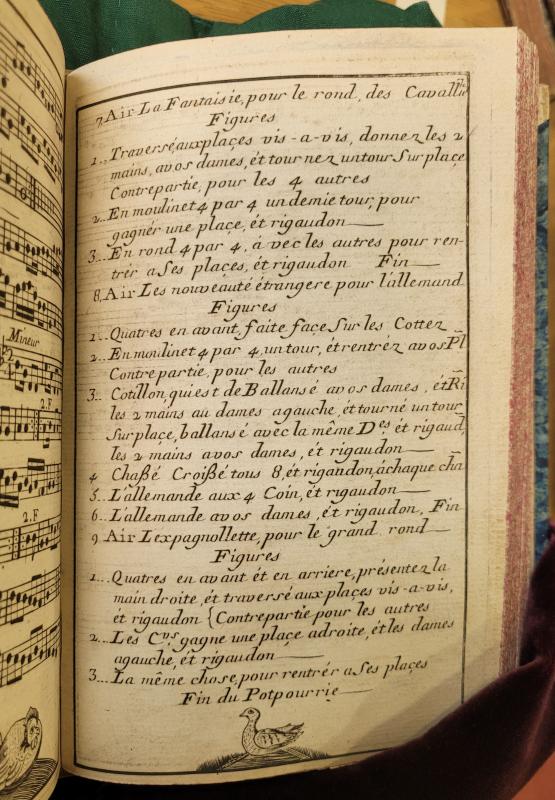 Mineur
2.F
2.F
7. Air La Fantaisie, pour le rond, des Cavallrs
Figures
1.. Traversé aux plaçes vis-a-vis, donnez les 2
mains, a vos dames, ét tournez un tour Sur plaçe
Contrepartie, pour les 4 autres
2.. En moulinet 4 par 4 un demie tour, pour
gagnér une plaçe, ét rigaudon
3.. En rond 4 par 4, á vec les autres pour ren-
trér a Ses plaçes, ét rigaudon Fin
8. Air Les nouveauté étrangere pour l'allemand
Figures
1.. Quatres en avant, faite façe Sur les Cottez
2.. En moulinet 4 par 4, un tour, ét rentréz a vos Pl
Contrepartie, pour les autres
3.. Cotillon, qui est de Ballansé a vos dames, ét Ri
les 2 mains au dames a gauche, ét tourné un tour
Sur plaçe, ballansé avec la même Des ét rigaud
les 2 mains a vos dames, ét rigaudon
4 Chaßé Croißé tous 8, ét rigaudon, a chaque cha
5.. L'allemande aux 4 Coin, ét rigaudon
6.. L'allemande a vos dames, ét rigaudon, Fin
9 Air L'expagnollette, pour le grand rond
Figures
1... Quatres en avant ét en arriere, présentez la
main droite, ét traversé aux plaçes vis-a-vis,
ét rigaudon {Contrepartie pour les autres
2... Les Crs gagne une plaçe a droite, ét les dames
a gauche, ét rigaudon
3... La même chose, pour rentrér a Ses plaçes
Fin du Potpourrie